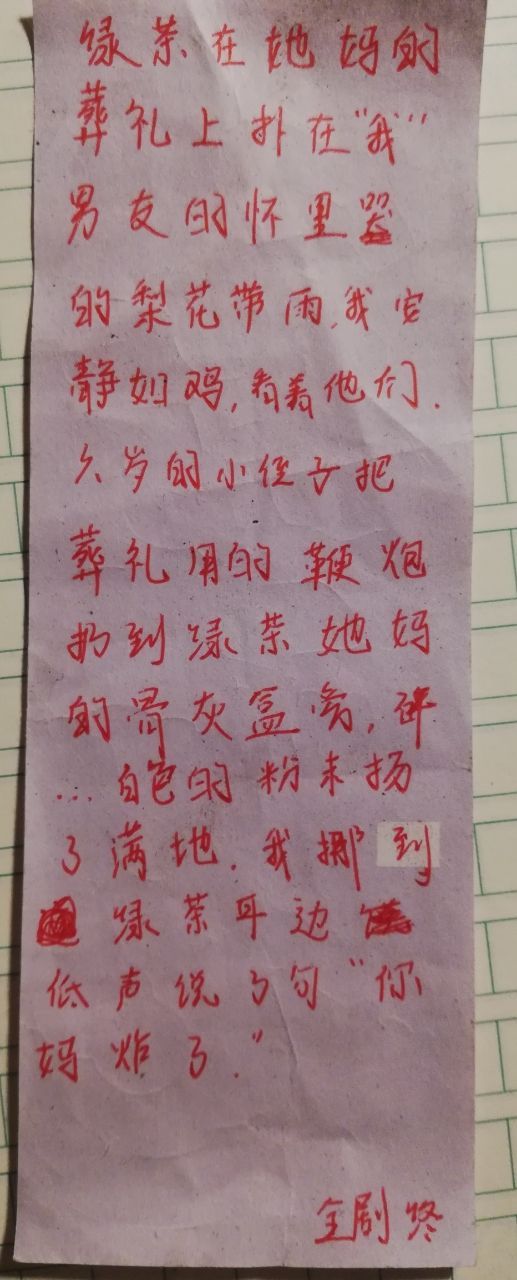 绿茶在她妈的
葬礼上扑在"我"
男友的怀里哭
的梨花带雨,我安
静如鸡,看着他们.
六岁的小侄子把
葬礼用的鞭炮
扔到绿茶她妈
的骨灰盒旁,砰
...白色的粉末扬
了满地.我挪到
绿茶耳边
低声说了句"你
妈炸了."
全剧终